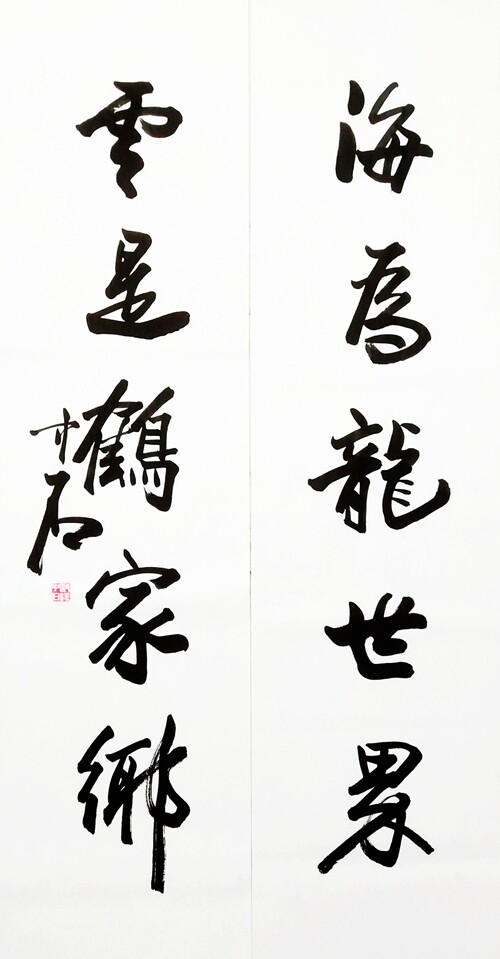 海為龍世界
雲是鶴家鄉
才石